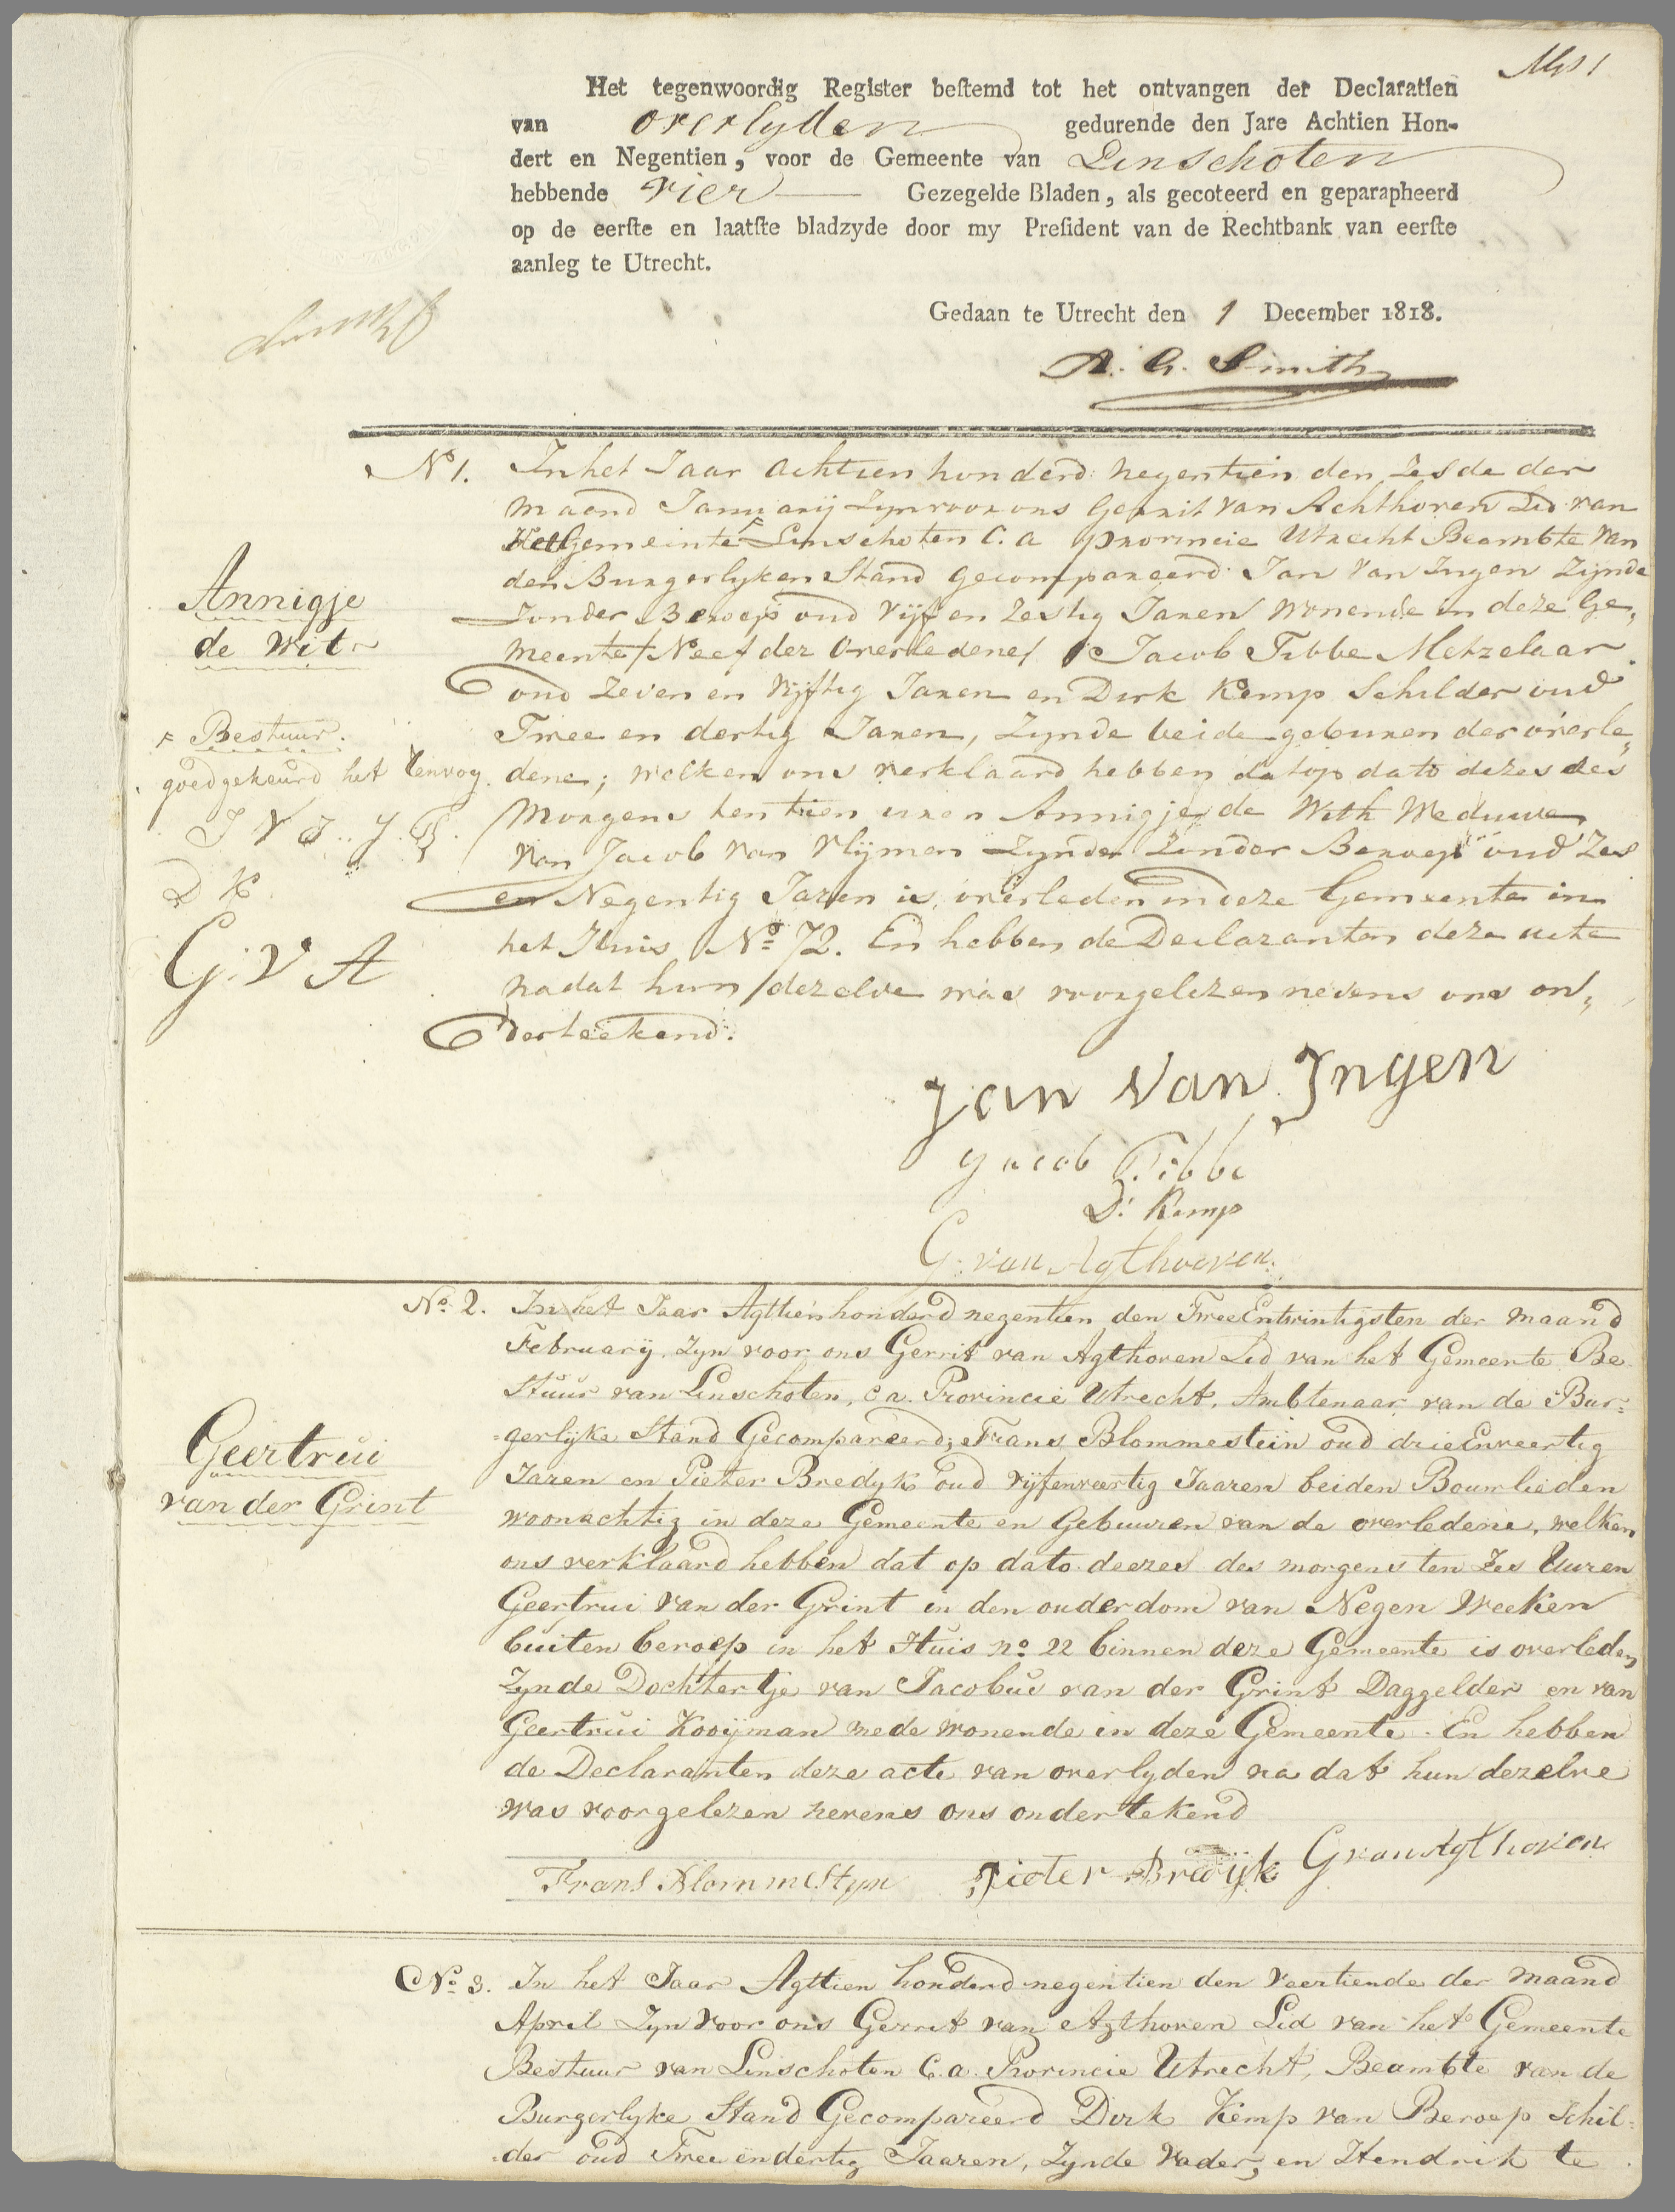 Het tegenwoordig Register bestemd tot het ontvangen der Declaratien
van overlyden gedurende den Jare Achtien Hon-
dert en Negentien, voor de Gemeente van Linschoten
hebbende vier Gezegelde Bladen, als gecoteerd en geparapheerd
op de eerste en laatste bladzyde door my President van de Rechtbank van eerste
aanleg te Utrecht.
Gedaan te Utrecht den 1 December 1818.
A. G. Smith
No 1. In het Jaar achtien honderd negentien den Zesde der
maand January Zyn voor ons Gerrit van Achthoven Lid van
Het Gemeinte F Linschoten C. a provincie Utrecht Beambte van
den Burgerlyken Stand gecompareerd Jan van Ingen Zijnde
Zonder Beroep oud Vijf en Zestig Jaren wonende in deze Ge„
meente / Neef der Overledene / Jacob Tibbe Metzelaar
oud Zeven en Vijftig Jaren en Dirk Kemp Schilder oud
Twee en dertig Jaren, Zynde beide gebuuren der overle„
dene; welken ons verklaard hebben dat op dato dezes des
Morgens ten tien uren Annigje de With Weduwe
van Jacob van Vlijmen Zynde Zonder Beroep oud Zes
en Negentig Jaren is overleden in deze Gemeente in
het Huis No 72. En hebben de Declaranten deze acte
nadat hun dezelve was voorgelezen nevens ons on„
derteekend.
Annigje
de Wit
F Bestuur.
goedgekeurd het Renvoy
J V J. J. T.
D K.
G. V A
Jan Van Ingen
Jacob Tibbe
D. Kemp
G. van Agthoven.
No. 2. In het Jaar Agttien honderd negentien den TweeEntwintigsten der maand
February Zyn voor ons Gerrit van Agthoven Lid van het Gemeente Be
stuur van Linschoten, c a. Provincie Utrecht, Ambtenaar van de Bur=
=gerlijke Stand Gecompareerd; Frans Blommestein oud drieEnveertig
Jaren en Pieter Bredyk oud vijfenveertig Jaaren beiden Bouwlieden
woonachtig in deze Gemeente en Gebuuren van de overledene, welken
ons verklaard hebben dat op dato deezes des morgens ten Zes Uuren
Geertrui van der Grint in den ouderdom van Negen Weeken
buiten beroep in het Huis no. 22 binnen deze Gemeente is overleden
Zynde Dochtertje van Jacobus van der Grint Daggelder en van
Geertrui Kooijman mede wonende in deze Gemeente. En hebben
de Declaranten deze acte van overlyden na dat hun dezelve
was voorgelezen nevens ons ondertekend
Geertrui
van der Grint
Frans Blommestyn Pieter Bredijk G van Agthoven
No. 3. In het Jaar Agttien honderd negentien den Veertiende der maand
April Zyn voor ons Gerrit van Agthoven Lid van het Gemeente
Bestuur van Linschoten C. a. Provincie Utrecht, Beambte van de
Burgerlyke Stand Gecompareerd Dirk Kemp van Beroep Schil=
=der oud Twee en dertig Jaaren, Zynde Vader, en Hendrik te